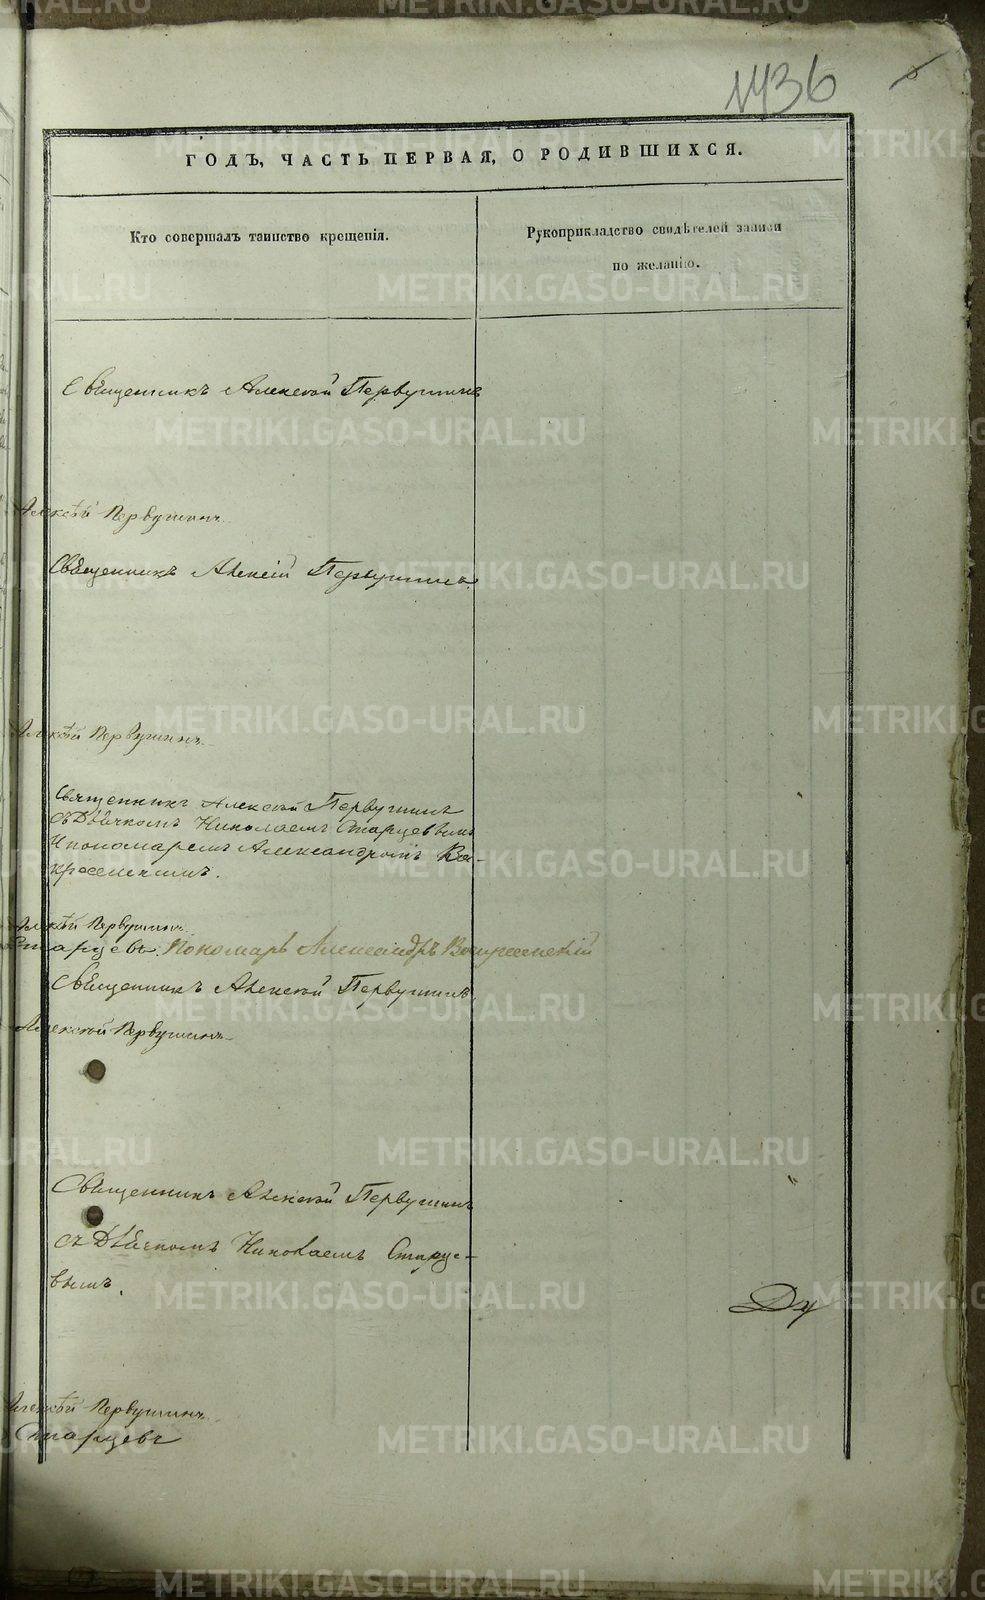 1436
ГОДЪ, ЧАСТЬ ПЕРВАЯ, О РОДИВШИХСЯ.
Кто совершалъ таинство крещенія.
Рукоприкладство свидѣтелей записи
по желанію.
Священникъ Алексѣй Первушинъ
Алексѣй Первушинъ
Священникъ Алексій Первушинъ
Алексѣй Первушинъ
Священникъ Алексѣй Первушинъ
съ Дьячкомъ Николаемъ Старцевымъ
Пономаремъ Александромъ Вос-
кресенскимъ.
Алексѣй Первушинъ
Старцевъ. Пономарь Александръ Воскресенскій
Священникъ Алексѣй Первушинъ
Алексѣй Первушинъ
Священникъ Алексѣй Первушинъ
съ Дьячкомъ Николаемъ Старце-
вымъ.
Ду
Алексѣй Первушинъ
Старцевъ
METRIKI.GASO-URAL.RU